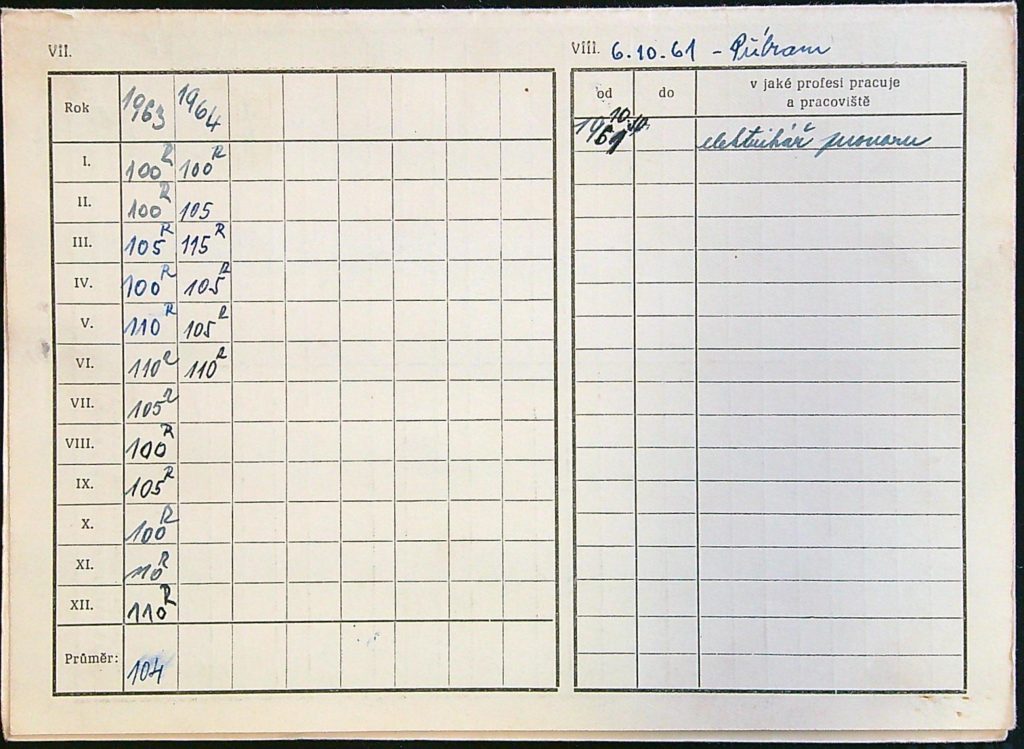 VII.
Rok 1963 1964
I. 100 R 100 R
II. 100 R 105
III. 105 R 115 R
IV. 100 R 105 R
V. 110 R 105 R
VI. 110 R 110 R
VII. 105 R
VIII. 100 R
IX. 105 R
X. 100 R
XI. 110 R
XII. 110 R
Průměr: 104
VIII. 6.10.61 - Příbram
od do v jaké profesi pracuje
a pracoviště
10
1961 elektrikář